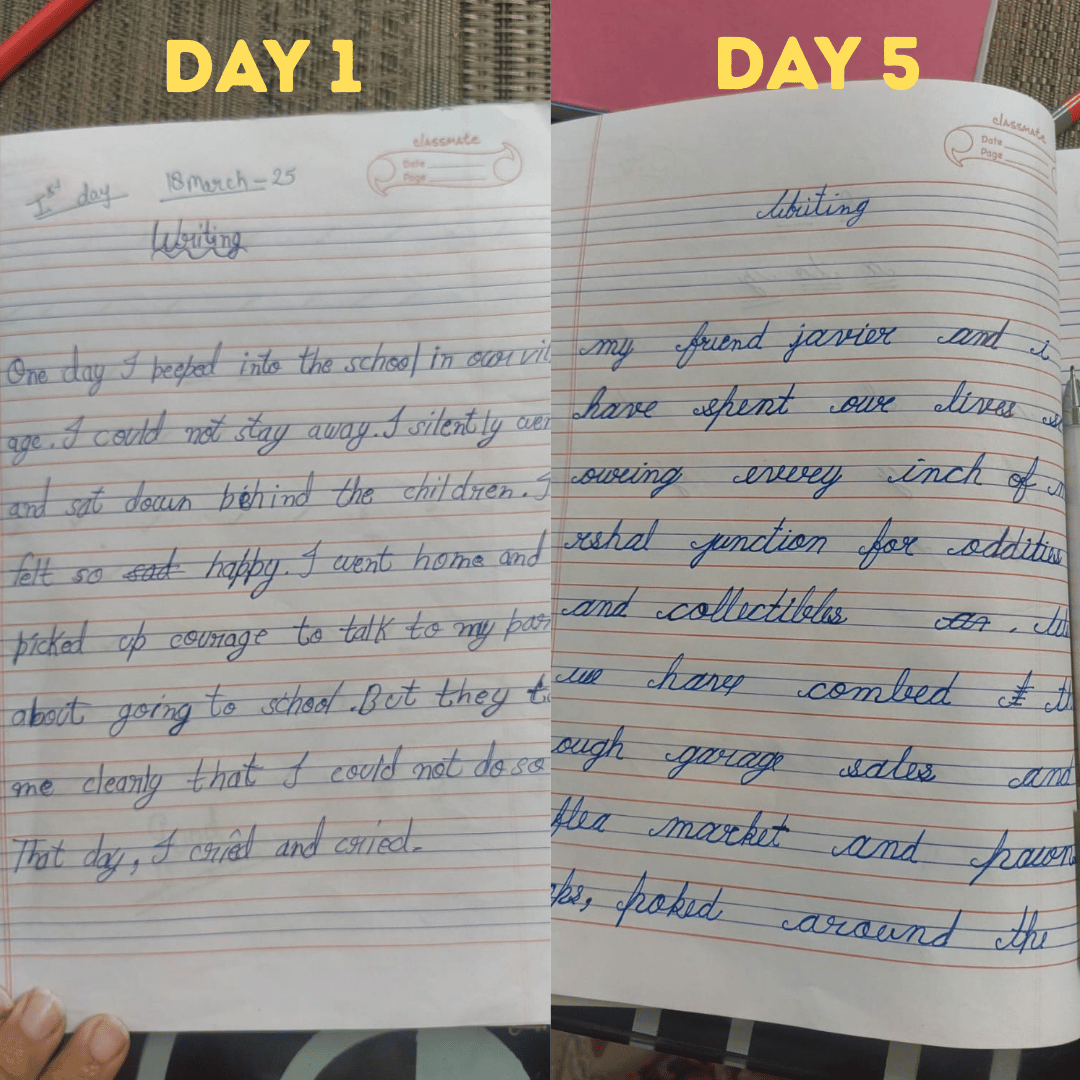 DAY 1
classmate
Date
Page
Ist day 18 March - 25
Writing
One day I peeped into the school in our vil
age. I could not stay away. I silently wen
and sat down behind the children. I
felt so sad happy. I went home and
picked up courage to talk to my par
about going to school. But they to
me clearly that I could not do so
That day, I cried and cried.
DAY 5
classmate
Date
Page
Writing
my friend javier and i
have spent our lives sc
owring every inch of m
rshal junction for oddities
and collectibles
we have combed th
ough garage sales and
flea market and pawn
ps, poked around the